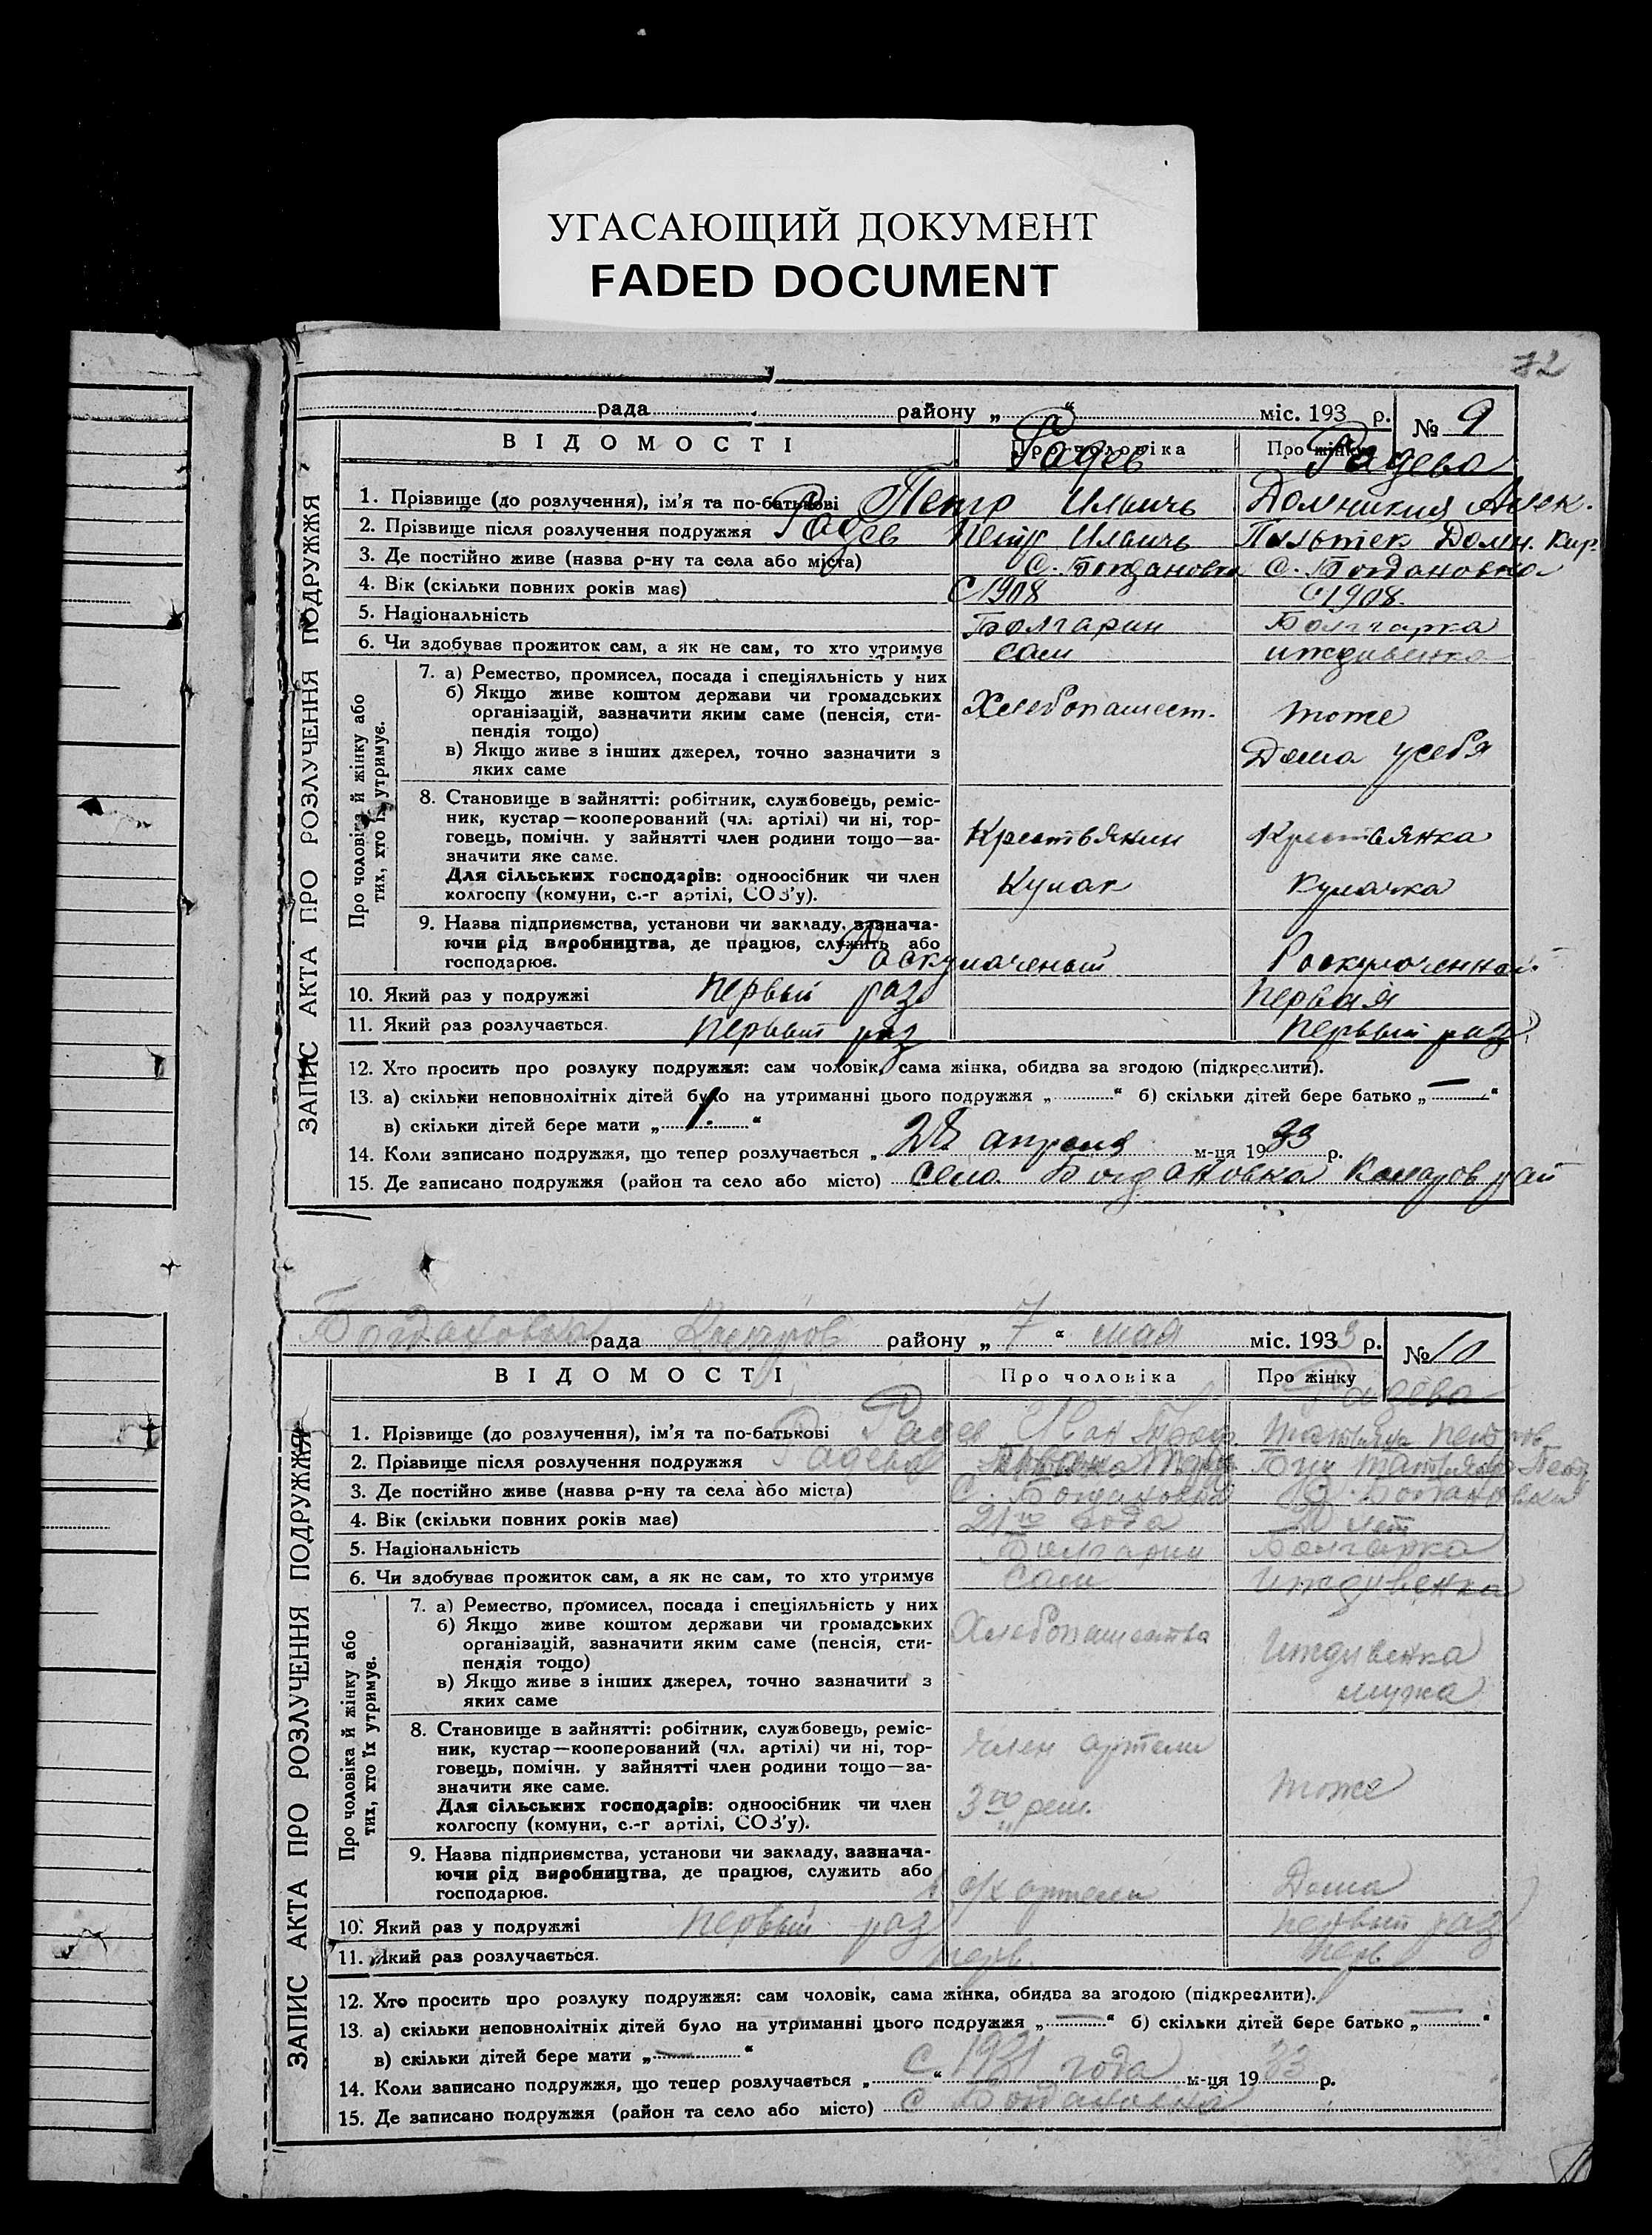 УГАСАЮЩИЙ ДОКУМЕНТ
FADED DOCUMENT
72
рада району „ “ міс. 193 р. № 9
ВІДОМОСТІ Про чоловіка Про жінку
Радев Радева
1. Прізвище (до розлучення), ім'я та по-батькові Петр Ильичь Домникия Алек.
2. Прізвище після розлучення подружжя Радев Петр Ильичь Домн. Кир.
3. Де постійно живе (назва р-ну та села або міста) С. Богдановка С. Богдановка
4. Вік (скільки повних років має) С 1908 С 1908.
5. Національність Болгарин Болгарка
6. Чи здобуває прожиток сам, а як не сам, то хто утримує сам иждивенка
ЗАПИС АКТА ПРО РОЗЛУЧЕННЯ ПОДРУЖЖЯ
Про чоловіка й жінку або
тих, хто їх утримує.
7. а) Ремество, промисел, посада і спеціяльність у них
б) Якщо живе коштом держави чи громадських
організацій, зазначити яким саме (пенсія, сти-
пендія тощо)
в) Якщо живе з інших джерел, точно зазначити з
яких саме
Хлебопашест. тоже
Дома у себя
8. Становище в зайнятті: робітник, службовець, реміс-
ник, кустар—кооперований (чл. артілі) чи ні, тор-
говець, помічн. у зайнятті член родини тощо—за-
значити яке саме.
Для сільських господарів: одноосібник чи член
колгоспу (комуни, с.-г артілі, СОЗ'у).
Крестьянин Крестьянка
Кулак Кулачка
9. Назва підприємства, установи чи закладу, зазнача-
ючи рід виробництва, де працює, служить або
господарює.
Раскулаченый
10. Який раз у подружжі первый раз Первая
11. Який раз розлучається. первый раз первый раз
12. Хто просить про розлуку подружжя: сам чоловік, сама жінка, обидва за згодою (підкреслити).
13. а) скільки неповнолітніх дітей було на утриманні цього подружжя „ “ б) скільки дітей бере батько „ — “
в) скільки дітей бере мати „ 1. “
14. Коли записано подружжя, що тепер розлучається „ 28 апреля м-ця 1933 р.
15. Де записано подружжя (район та село або місто) село Богдановка Комаров рай
Богдановка рада Комаров району „ 7 “ мая міс. 1933 р. № 10
ВІДОМОСТІ Про чоловіка Про жінку
Радева
1. Прізвище (до розлучення), ім'я та по-батькові Радев Иван Татьяна Петров
2. Прізвище після розлучення подружжя Радева
3. Де постійно живе (назва р-ну та села або міста) С. Богдановка С. Богдановка
4. Вік (скільки повних років має) 21 года 20 лет
5. Національність Болгарин Болгарка
6. Чи здобуває прожиток сам, а як не сам, то хто утримує сам иждивенка
ЗАПИС АКТА ПРО РОЗЛУЧЕННЯ ПОДРУЖЖЯ
Про чоловіка й жінку або
тих, хто їх утримує.
7. а) Ремество, промисел, посада і спеціяльність у них
б) Якщо живе коштом держави чи громадських
організацій, зазначити яким саме (пенсія, сти-
пендія тощо)
в) Якщо живе з інших джерел, точно зазначити з
яких саме
Хлебопашества Иждивенка
мужа
8. Становище в зайнятті: робітник, службовець, реміс-
ник, кустар—кооперований (чл. артілі) чи ні, тор-
говець, помічн. у зайнятті член родини тощо—за-
значити яке саме.
Для сільських господарів: одноосібник чи член
колгоспу (комуни, с.-г артілі, СОЗ'у).
член артели тоже
9. Назва підприємства, установи чи закладу, зазнача-
ючи рід виробництва, де працює, служить або
господарює.
с/х артели Дома
10. Який раз у подружжі первый раз первый раз
11. Який раз розлучається. перв. перв.
12. Хто просить про розлуку подружжя: сам чоловік, сама жінка, обидва за згодою (підкреслити).
13. а) скільки неповнолітніх дітей було на утриманні цього подружжя „ — “ б) скільки дітей бере батько „ — “
в) скільки дітей бере мати „ — “
14. Коли записано подружжя, що тепер розлучається „ С “ 1931 года м-ця 1933 р.
15. Де записано подружжя (район та село або місто) С Богдановка